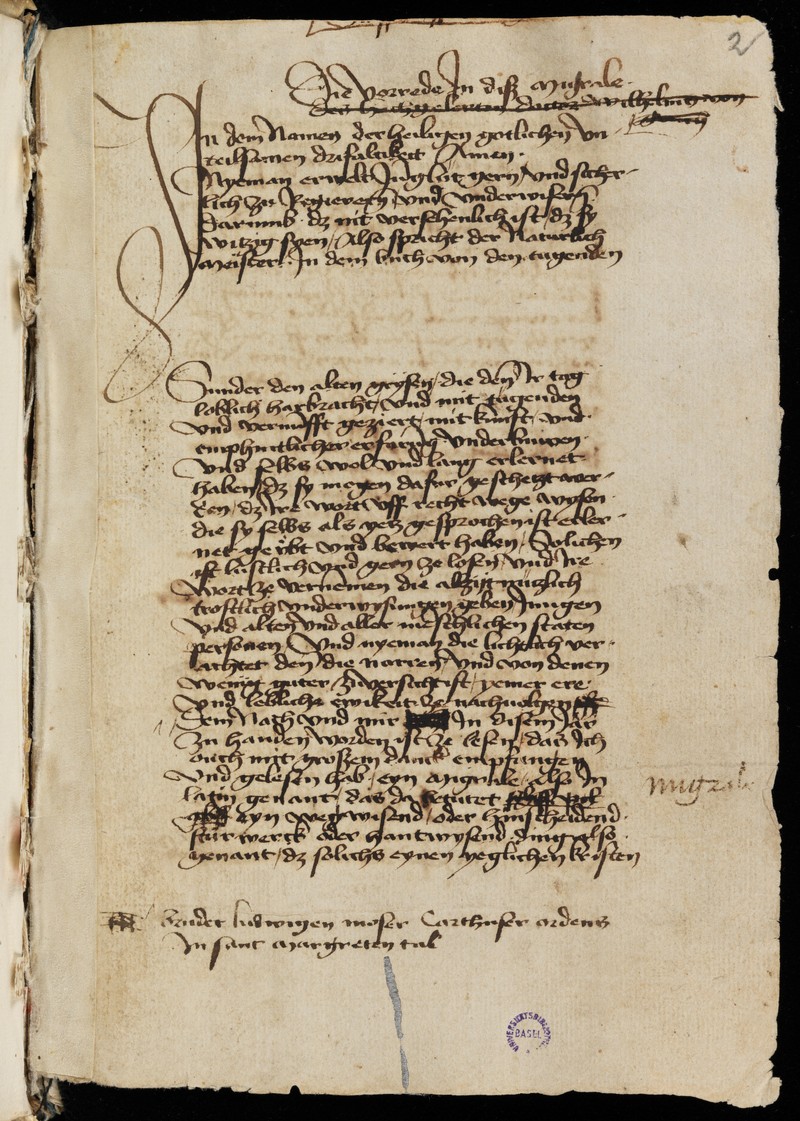 2
Die Vorrede In disz Migrale.
des hochgelerten doctor Wilhelmus von
In dem Namen der heiligen gotlichen vn
teilsamen drifaltikeit Amen.
Nyeman erwelt Jung lüt gern vnd sicher-
lich zu Regierern vnd vnderwisern
darumb dz nit versehenlich ist dz sy
witzig syen / Also spricht der Naturlich
meister. In dem buch von den tugenden
Sunder den alten grysen / die denn Ir tag
loblich harbracht / vnd mit tugenden
vnd vernunfft geziert / mit kunst / vnd
emphintlicher erfarung vnderkumen.
vnd selbs wol vnd lang erlernet
haben / dz sy mogen dafur geschetzt wer-
den / dz Ire wort vff recht wege wysen
die sy selbs als yetz gesprochen ist erler-
net geübt vnd bewert haben / Solichen
ist lustlich vnd gern ze losen / vnd Ire
wort ze vernemen die alzijt nutzlich
trostlich vnderwysungen geben Jungen
vnd alten vnd aller menschlichen staten
personen / Vnd nyeman die lichtlich ver-
achtet den die narren / vnd von denen
wenig guter zuversicht ist / yemer ere
vnd lebliche ewikeit ze nachuolgen
Dem Nach vnd mir In disem Jar
zu handen worden ist ze lesen / das Ich
ouch mit grossem danck empfangen
vnd gelesen hab / eyn Migrale / also In
latin genant / das da betutet
eyn wegwisend / oder hinscheidend
für werck oder hantwysend ding also
genant / dz solichs eynen yeglichen kristen
migrale
bruder ludwigen moser Carthuser ordens
In sant Margreten tal
UNIVERSITÄTSBIBLIOTHEK BASEL